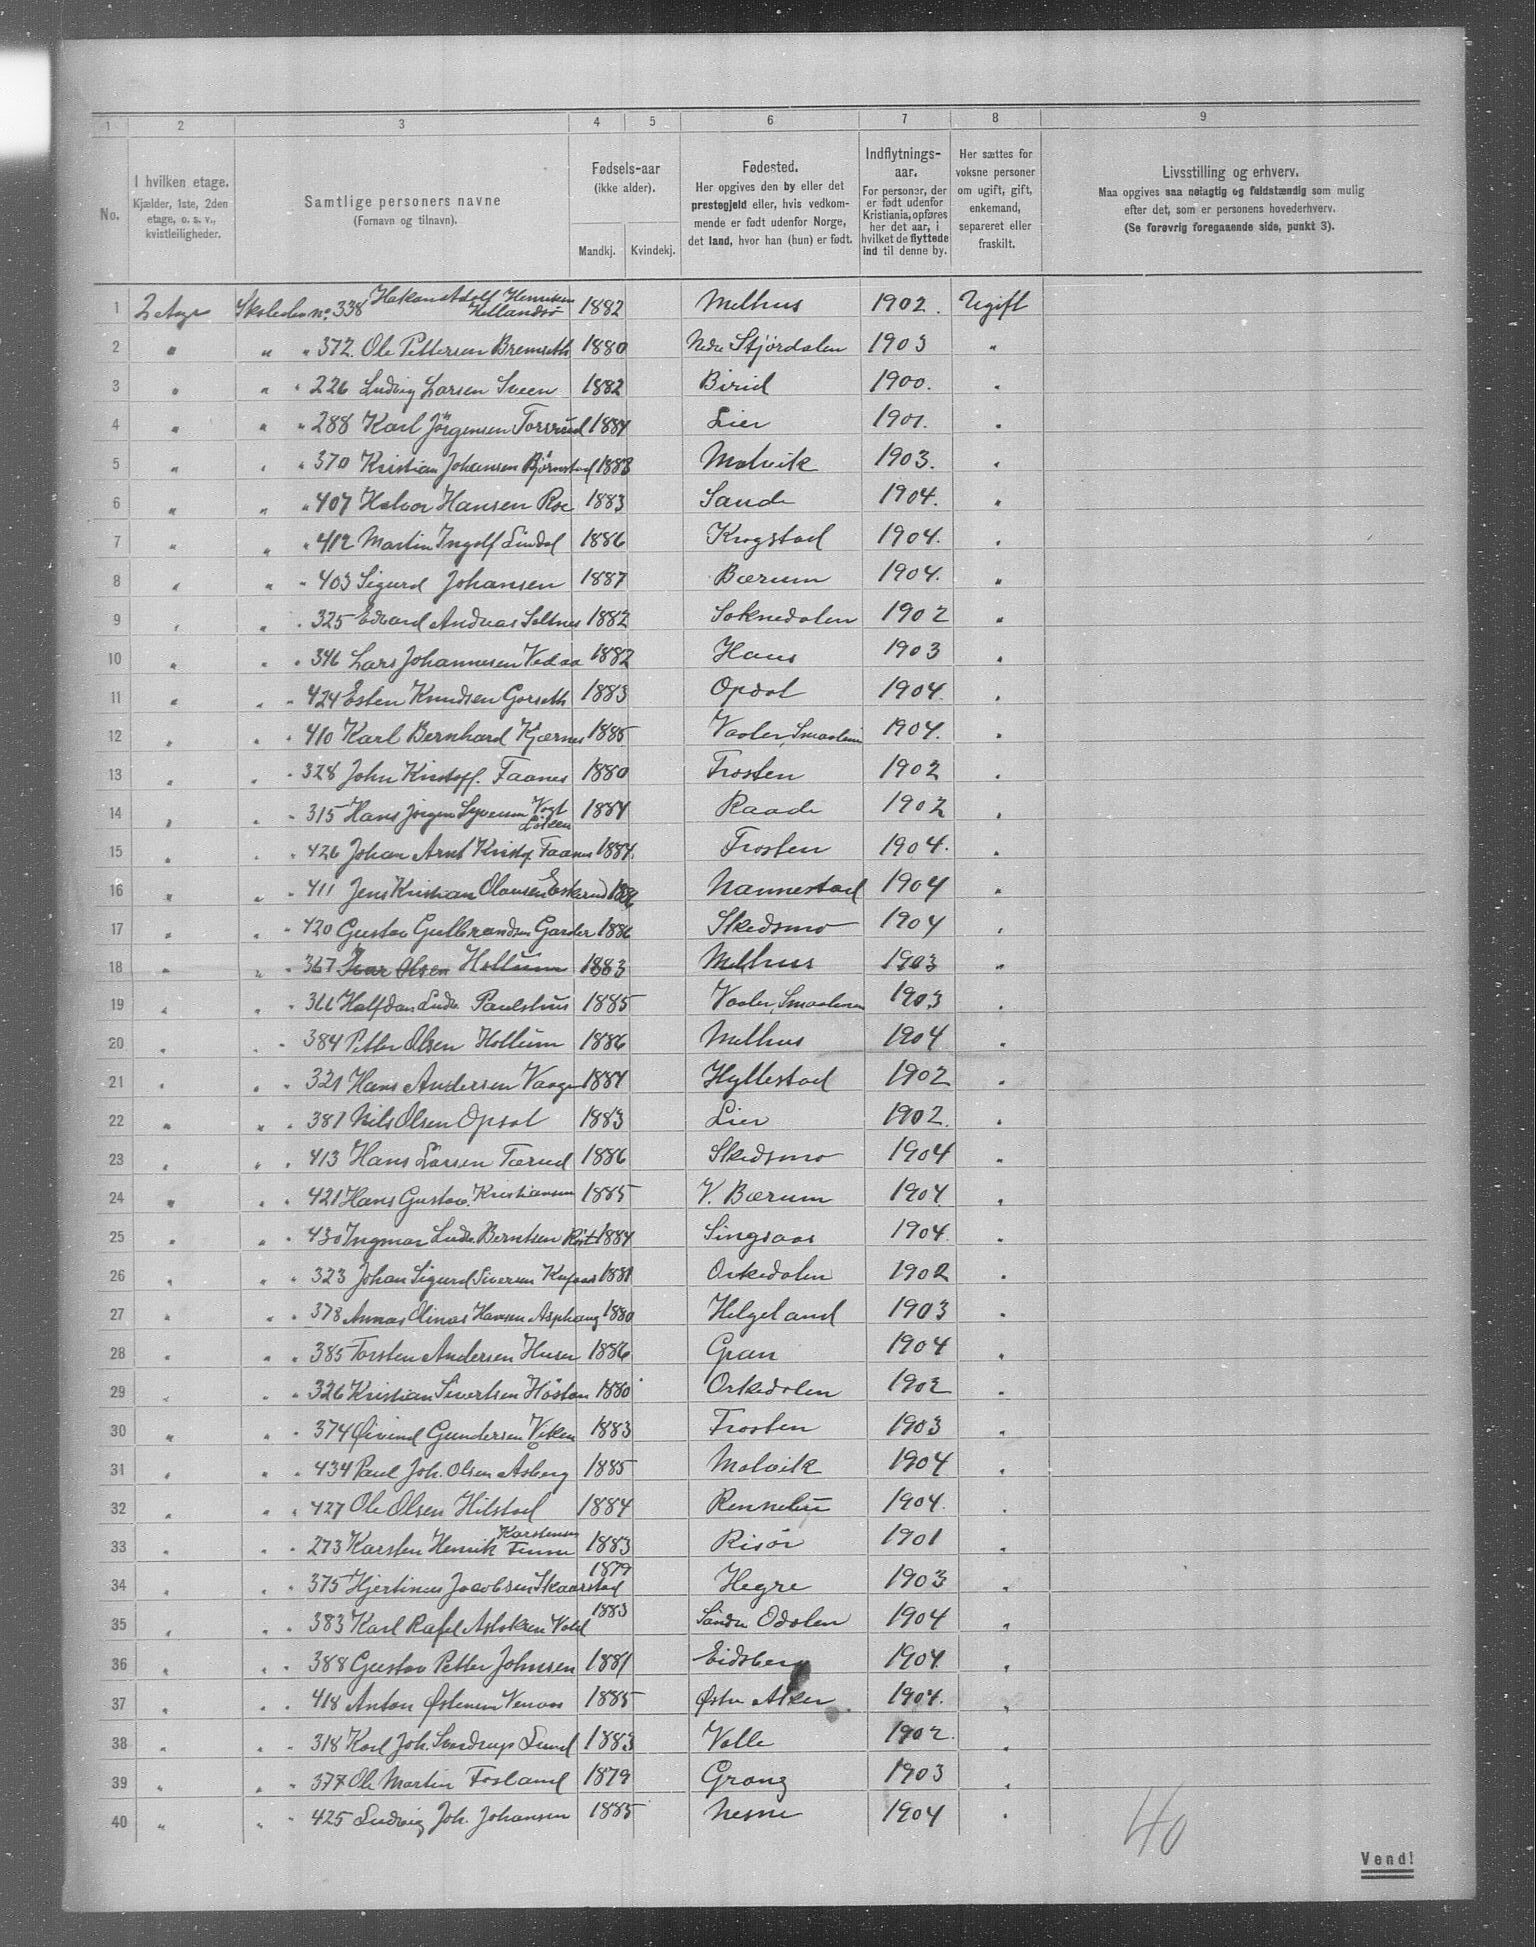 1 2 3 4 5 6 7 8 9
No.
I hvilken etage.
Kjælder, 1ste, 2den
etage, o. s. v.,
kvistleiligheder.
Samtlige personers navne
(Fornavn og tilnavn).
Fødsels-aar
(ikke alder).
Mandkj. Kvindekj.
Fødested.
Her opgives den by eller det
prestegjeld eller, hvis vedkom-
mende er født udenfor Norge,
det land, hvor han (hun) er født.
Indflytnings-
aar.
For personer, der
er født udenfor
Kristiania, opføres
her det aar, i
hvilket de flyttede
ind til denne by.
Her sættes for
voksne personer
om ugift, gift,
enkemand,
separeret eller
fraskilt.
Livsstilling og erhverv.
Maa opgives saa nøiagtig og fuldstændig som mulig
efter det, som er personens hovederhverv.
(Se forøvrig foregaaende side, punkt 3).
1 2 no. 338 Hakon Adolf Henriksen 1882 Melhus 1902. Ugift
2 " " " 372. Ole Pettersen Bremseth 1880 Nedre Stjördalen 1903 "
3 " " " 226 Ludvig Larsen Sveen 1882 Birid 1900. "
4 " " " 288 Karl Jörgensen Torsrud 1884 Lier 1901. "
5 " " " 370 Kristian Johansen Björnstad 1883 Malvik 1903. "
6 " " " 407 Halvor Hansen Roe 1883 Sande 1904. "
7 " " " 412 Martin Ingolf Lindal 1886 Krogstad 1904. "
8 " " " 403 Sigurd Johansen 1887 Bærum 1904. "
9 " " " 325 Edvard Andreas Soltnes 1882 Soknedalen 1902 "
10 " " " 346 Lars Johannesen Vedaa 1882 Haus 1903 "
11 " " " 424 Esten Knudsen Gorseth 1883 Opdal 1904. "
12 " " " 410 Karl Bernhard Kjærnes 1885 Vaaler, Smaalene 1904. "
13 " " " 328 John Kristoff. Faanes 1880 Frosten 1902 "
14 " " " 315 Hans Jörgen Syversen Vogt 1884 Raade 1902 "
15 " " " 426 Johan Arnt Kristof. Faanes 1884. Frosten 1904. "
16 " " " 411 Jens Kristian Olausen Eskerud 1886 Nannestad 1904 "
17 " " " 420 Gustav Gulbrandsen Garder 1886 Skedsmo 1904 "
18 " " " 367 Ivar Olsen Hollum 1883 Melhus 1903 "
19 " " " 366 Halfdan Ludv. Paulshus 1885 Vaaler, Smaalenene 1903 "
20 " " " 384 Petter Olsen Hollum 1886 Melhus 1904 "
21 " " " 321 Hans Andersen Vaage 1884 Hyllestad 1902 "
22 " " " 381 Nils Olsen Opsal 1883 Lier 1902. "
23 " " " 413 Hans Larsen Tærud 1886 Skedsmo 1904 "
24 " " " 421 Hans Gustav. Kristiansen 1885 V. Bærum 1904. "
25 " " " 430 Ingmar Ludv. Berntsen 1884 Singsaas 1904 "
26 " " " 323 Johan Sigurd Siversen 1881 Orkedalen 1902 "
27 " " " 378 Annas Olinas Hansen Asphaug 1880 Helgeland 1903 "
28 " " " 385 Torsten Andersen Husen 1886 Gran 1904 "
29 " " " 326 Kristian Sivertsen Höston 1880 Orkedalen 1902 "
30 " " " 374 Øivind Gundersen Viken 1883 Frosten 1903 "
31 " " " 434 Paul Joh. Olsen Åsberg 1885 Malvik 1904 "
32 " " " 427 Ole Olsen Hilstad 1884 Rennebu 1904. "
33 " " " 273 Karsten Henrik Karstensen Finne 1883 Risör 1901 "
34 " " " 375 Hjertinus Jacobsen Skaarstad 1879 Hegre 1903 "
35 " " " 383 Karl Rafel Aslaksen Vold 1883 Söndre Odalen 1904 "
36 " " " 388 Gustav Petter Johnsen 1881 Eidsberg 1904 "
37 " " " 418 Anton Østensen 1885 Østre Aker 1904. "
38 " " " 318 Karl Joh. Sverdrup Lund 1883 Valle 1902 "
39 " " " 377 Ole Martin Fosland 1879 Grong 1903 "
40 " " " 425 Ludvig Joh. Johansen 1885 Nesne 1904 "
40
Vend!